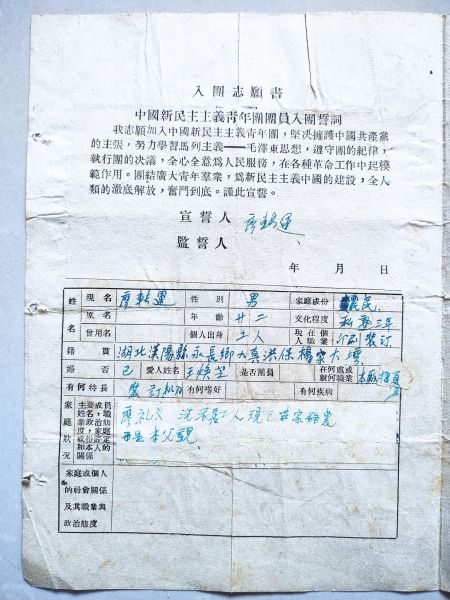 入團志願書
中國新民主主義青年團團員入團誓詞
我志願加入中國新民主主義青年團，堅决擁護中國共產黨
的主張，努力學習馬列主義——毛澤東思想，遵守團的紀律，
執行團的决議，全心全意爲人民服務，在各種革命工作中起模
範作用。團結廣大青年羣衆，爲新民主主義中國的建設，全人
類的澈底解放，奮鬥到底。謹此宣誓。
宣誓人 廖運
監誓人
年 月 日
姓名 現名 廖運 性別 男 家庭成份 農民
原名 年齡 廿二 文化程度 私塾三年
曾用名 個人出身 工人 現在個人職業 印刷裝訂
籍貫 湖北漢陽縣永長鄉九真洪保楊家大塆
婚否 已 愛人姓名 王 是否團員 在何處或就何職業
有何特長 裝訂 有何嗜好 有何疾病
家庭狀况 主要成員姓名，職業或政治態度，家庭成份評定和本人的關係 廖 工人現已在家務農
是本父親
家庭或個人
的社會關係
及其職業與
政治態度